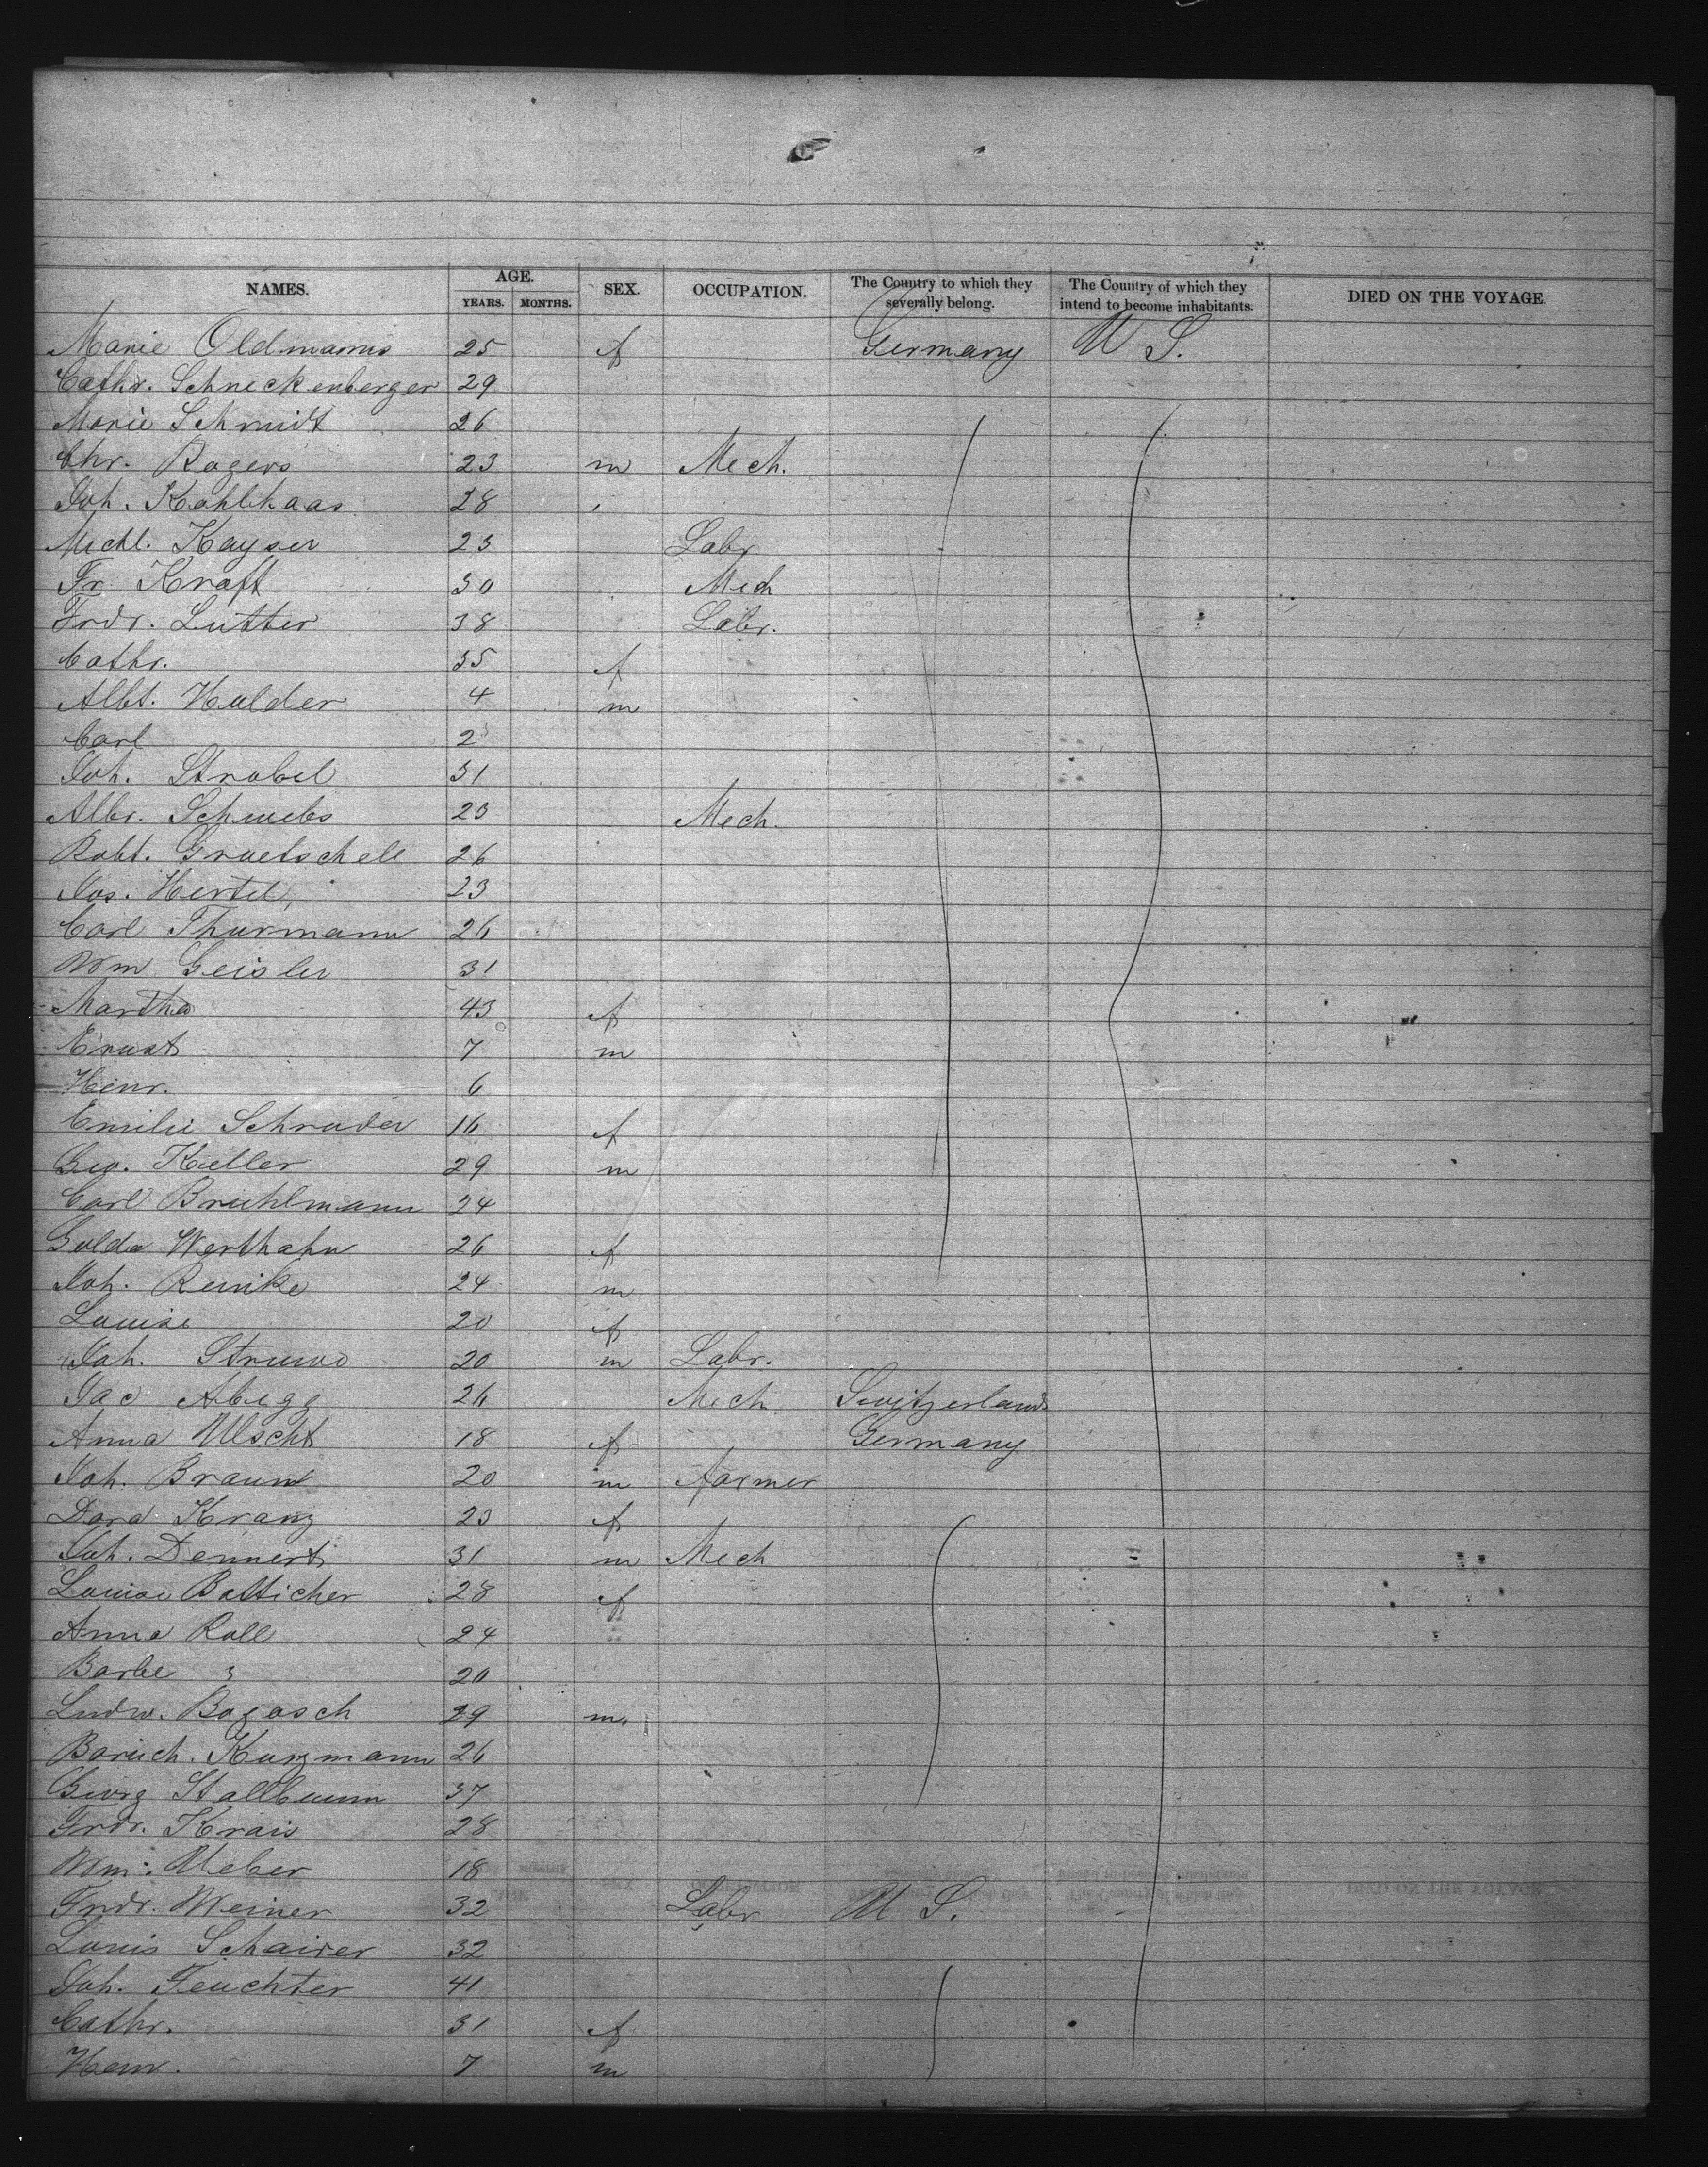 NAMES. AGE. SEX. OCCUPATION. The Country to which they severally belong. The Country of which they intend to become inhabitants. DIED ON THE VOYAGE.
YEARS. MONTHS.
Marie Oldmanns 25 f Germany U S.
Cathr. Schneckenberger 29
Marie Schmidt 26
Chr. Rogers 23 m Mech.
Joh. Kohlhaas 28
Michl. Kayser 23 Labr
Fr. Kraft 30 Mech
Frdr. Lutter 38 Labr.
Cathr. 35 f
Albt. Halder 4 m
Carl 2
Joh. Strobel 31
Albr. Schwebs 23 Mech.
Robt. Gruetschell 26
Jos. Hertel 23
Carl Thurmann 26
Wm Geisler 31
Martha 43 f
Ernst 7 m
Heinr. 6
Emilie Schrader 16 f
Geo. Keller 29 m
Carl Bruhlmann 24
Golda Werthahn 26 f
Joh. Reinike 24 m
Louise 20 f
Joh. Struwo 20 m Labr.
Jac Abegg 26 Mech Switzerland
Anna Ulscht 18 f Germany
Joh. Braun 20 m farmer
Dora Kranz 23 f
Joh. Dennert 31 m Mech
Louise Botticher 28 f
Anna Roll 24
Barbe " 20
Ludw. Bogasch 29 m.
Baruch. Kurzmann 26
Georg Stallbaum 37
Frdr. Krais 28
Wm. Ueber 18
Frdr. Weiner 32 Labr U S.
Louis Schairer 32
Joh. Feuchter 41
Cathr. 31 f
Heinr. 7 m